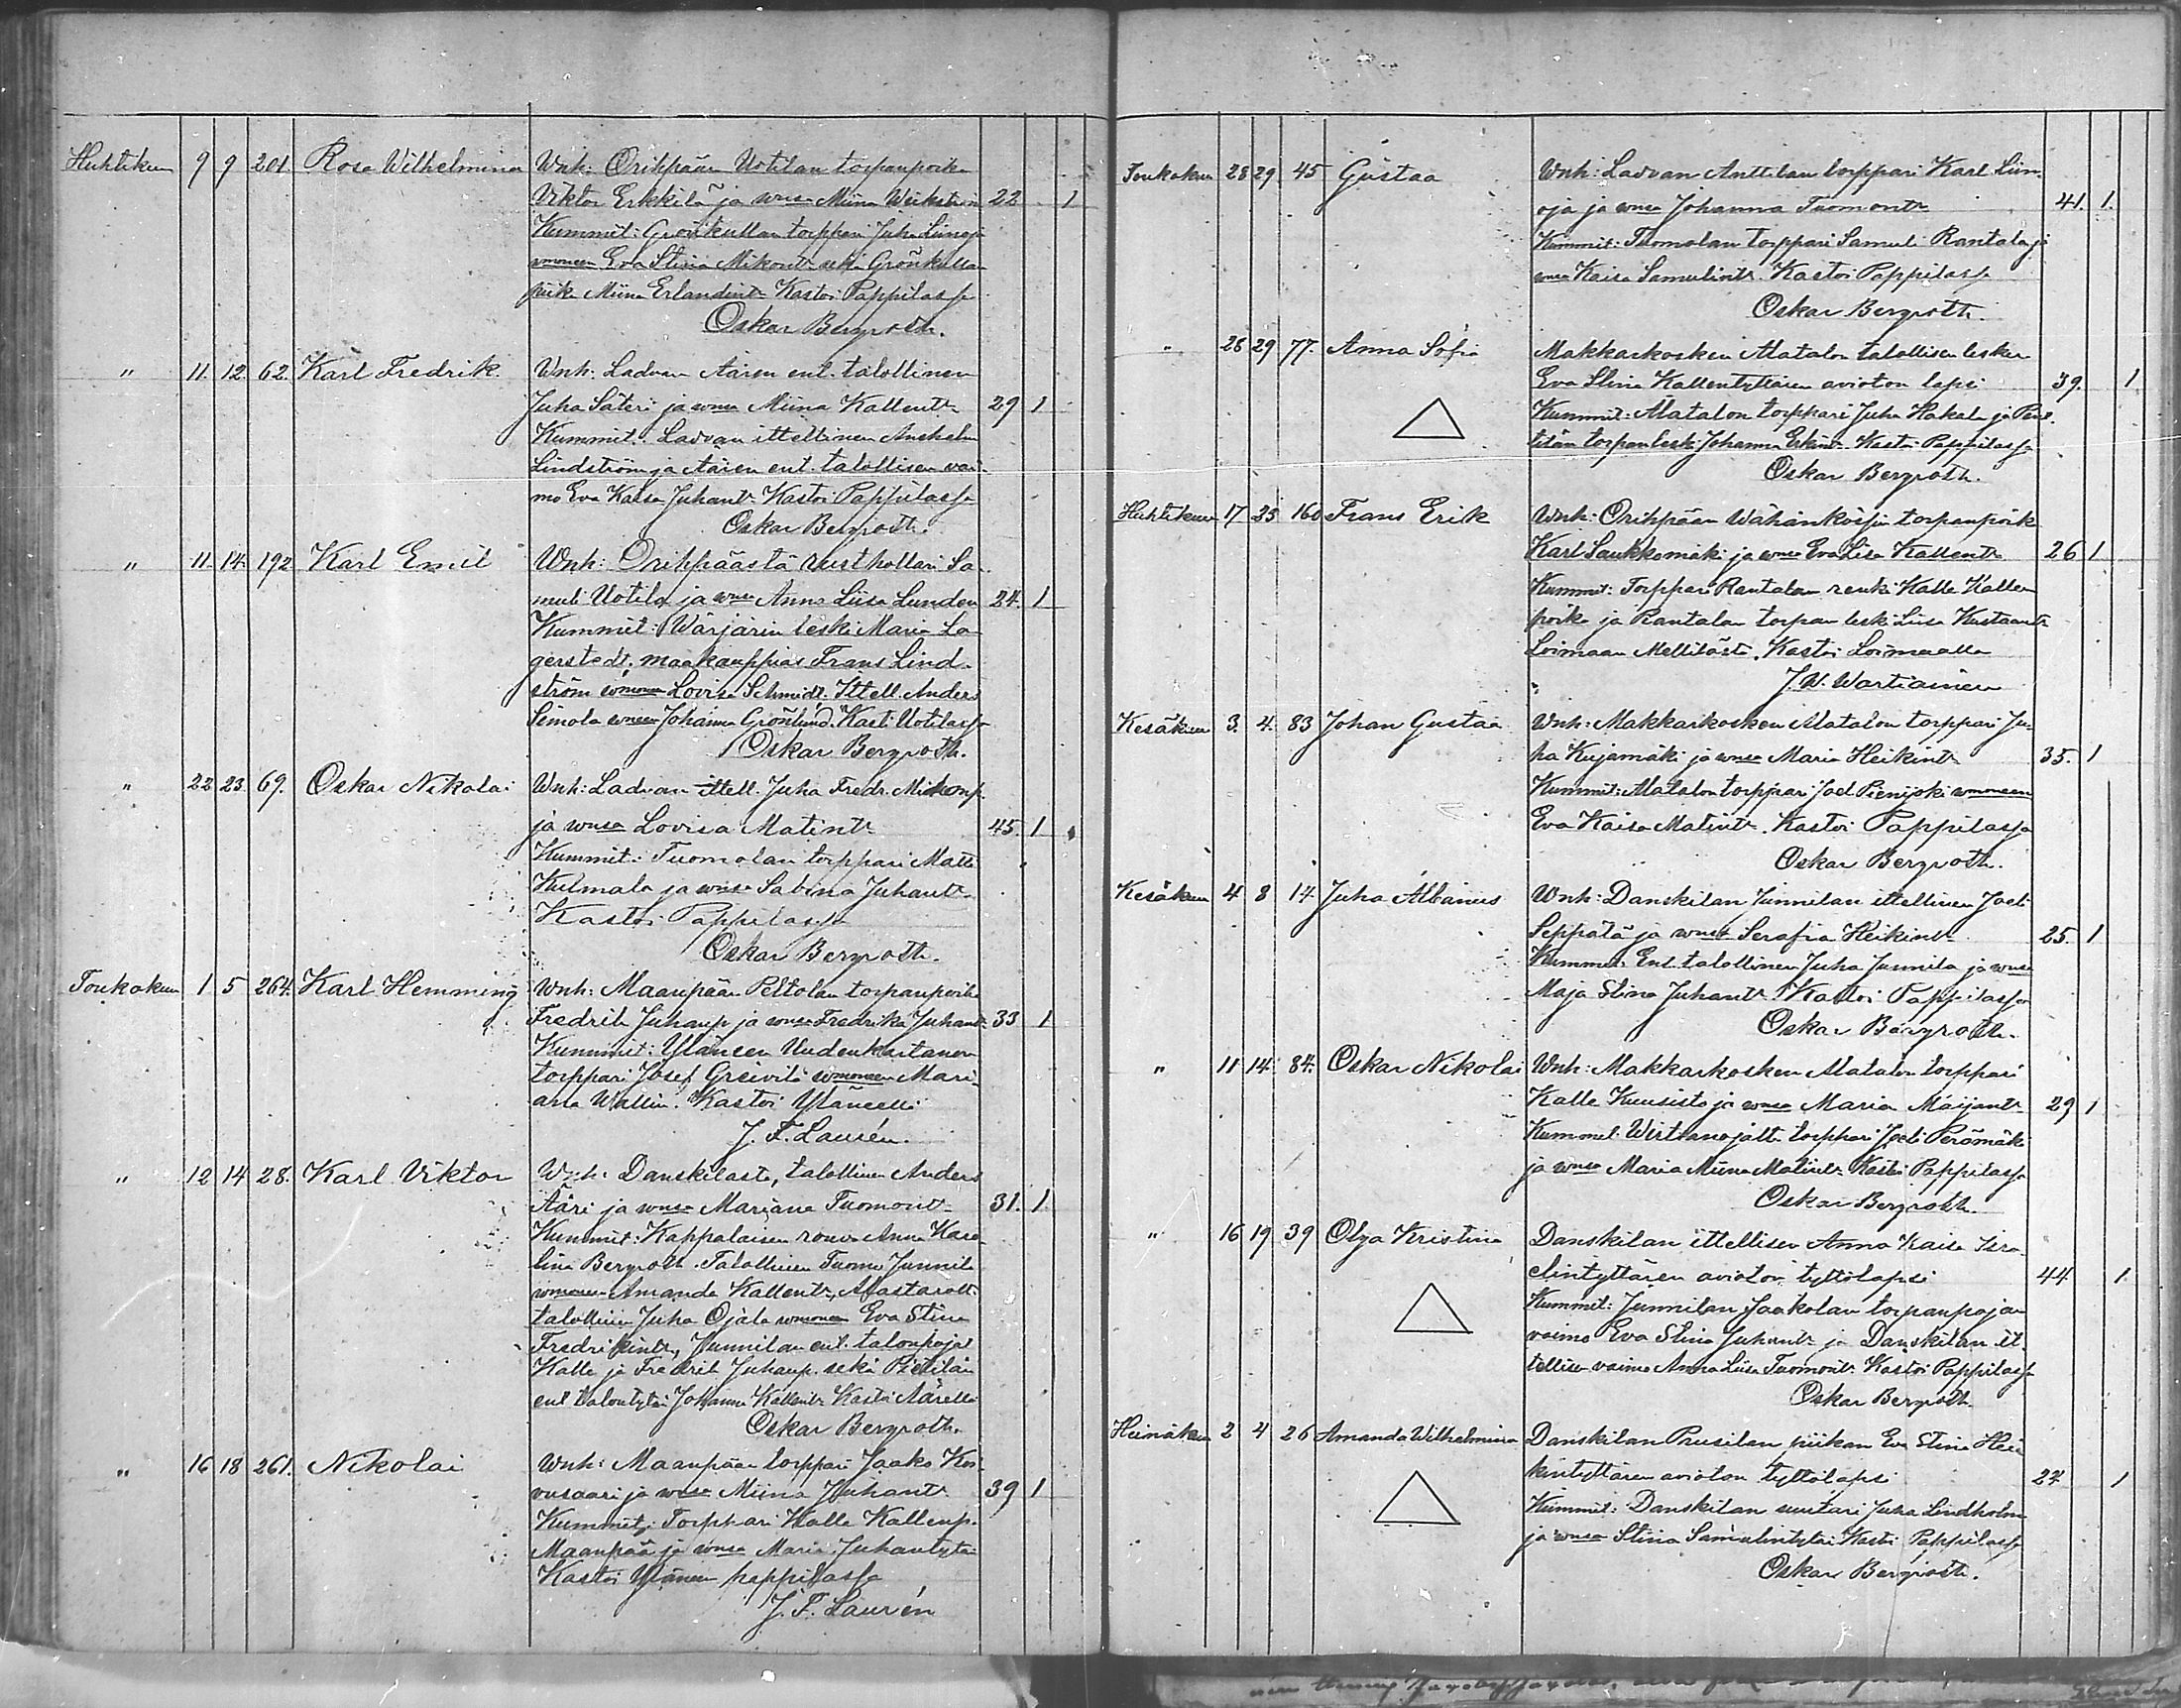 Huhtikuu 9 9 201. Rosa Wilhelmina Wnh: Orihpään Uotilan torpanpoika
Viktor Erkkilä ja wmsa Miina Wickström 22 1
Kummit: Grönkullan torppari Juha Liinoja
wmoneen Eva Stina Mikont. sekä Grönkullan
piika Miina Erlandint. Kastoi Pappilassa
Oskar Bergroth.
" 11. 12. 62. Karl Fredrik. Wnh: Ladvan Äären ent. talollinen
Juha Säteri ja wmsa Miina Kallentr 29 1
Kummit: Ladvan ittellinen Anshelm
Lindström ja Äären ent. talollisen vai-
mo Eva Kaisa Juhantr. Kastoi Pappilassa
Oskar Bergroth.
" 11. 14. 192 Karl Emil Wnh: Orihpäästä rusthollari Sa-
muli Uotila ja wmsa Anna Liisa Lunden 24. 1
Kummit: Wärjärin leski Maria La-
gerstedt, maakauppias Frans Lind-
ström wmoneen Lovisa Schmidt. Ittell. Anders
Simola wmoneen Johanna Grönlund. Kasti Uotilassa
Oskar Bergroth.
" 22 23. 69. Oskar Nikolai Wnh: Ladvan ittell. Juha Fredr. Mickonp.
ja wmsa Lovisa Matintr 45. 1
Kummit: Tuomolan torppari Matti
Kulmala ja wmsa Sabina Juhantr
Kastoi Pappilassa
Oskar Bergroth.
Toukokuu 1 5 264. Karl Hemming Wnh: Maanpään Peltolan torpanpoika
Fredrik Juhanp. ja wmsa Fredrika Juhantr 33 1
Kummit: Yläneen Uudenkartanon
torppari Josef Greivilä wmoneen Mari-
ana Wallin. Kastoi Yläneellä
J. F. Laurén.
" 12 14 28. Karl Viktor Wnh: Danskilasta, talollinen Anders
Ääri ja wmsa Mariana Tuomontr. 31. 1.
Kummit: Kappalaisen rouva Anna Karo-
lina Bergroth. Talollinen Tuomo Junnila
wmoneen Amanda Kallentr, Alastarolta
talollinen Juha Ojala wmoneen Eva Stina
Fredrikintr, Junnilan ent. talonpojat
Kalle ja Fredrik Juhanp. sekä Pietilän
ent. talontytär Johanna Kallentr. Kasti Äärellä
Oskar Bergroth.
" 16 18 261. Nikolai Wnh: Maanpään torppari Jaako Koi-
vusaari ja wmsa Miina Juhantr. 39 1
Kummit: Torppari Kalle Kallenp.
Maanpää ja wmsa Maria Juhantytär
Kastoi Yläneen pappilassa
J. F. Laurén
Toukokuu 28 29. 45 Gustaa Wnh: Ladvan Anttilan torppari Karl Liin-
oja ja wmsa Johanna Tuomontr 41. 1.
Kummit: Tuomolan torppari Samuli Rantala ja
wmsa Kaisa Samulintr. Kastoi Pappilassa
Oskar Bergroth.
" 28 29 77. Anna Sofia Makkarkosken Alatalon talollisen lesken
Eva Stina Kallentyttären avioton lapsi 39. 1
Kummit: Alatalon torppari Juha Hakala ja Pent-
tilän torpan leski Johanna Erkint. Kastoi Pappilassa
Oskar Bergroth.
Huhtikuu 17 25 160 Frans Erik Wnh: Orihpään Wähänkörsin torpanpoik.
Karl Laukkomäki ja wmsa Eva Lisa Kallentr 26 1
Kummit: Torppari Rantalan renki Kalle Kallen-
poika ja Rantalan torpan leski Liisa Kustaantr
Loimaan Mellilästä. Kastoi Loimaalla
J. W. Wartiainen
Kesäkuu 3. 4. 83 Johan Gustaa Wnh: Makkarkosken Alatalon torppari Ju-
ha Kujamäki ja wmsa Maria Heikintr 35. 1
Kummit: Alatalon torppari Joel Pienijoki wmoneen
Eva Kaisa Matintr. Kastoi Pappilassa
Oskar Bergroth.
Kesäkuu 4 8 14. Juha Albanius Wnh: Danskilan Junnilan ittellinen Joeli
Seppälä ja wmsa Serafia Heikintr. 25. 1
Kummit: Ent. talollinen Juha Junnila ja wmsa
Maja Stina Juhantr. Kastoi Pappilassa
Oskar Bergroth.
" 11 14 84. Oskar Nikolai Wnh: Makkarkosken Alatalon torppari
Kalle Kuusisto ja wmsa Maria Maijantr 29 1
Kummit: Wirttanojalta torppari Joeli Perämäki
ja wmsa Maria Miina Matintr. Kastoi Pappilassa
Oskar Bergroth.
" 16 19 39 Olga Kristina Danskilan ittellisen Anna Kaisa Isra-
elintyttären avioton tyttölapsi 44 1.
Kummit: Junnilan Jaakolan torpanpojan
vaimo Eva Stina Juhantr. ja Danskilan it-
tellisen vaimo Anna Liisa Tuomontr. Kastoi Pappilassa
Oskar Bergroth.
Heinäkuu 2 4 26 Amanda Wilhelmina Danskilan Prusilan piikan Eva Stina Hei-
kintyttären avioton tyttölapsi 27. 1
Kummit: Danskilan suutari Juha Lindholm
ja wmsa Stina Samulintytär. Kastoi Pappilassa
Oskar Bergroth.